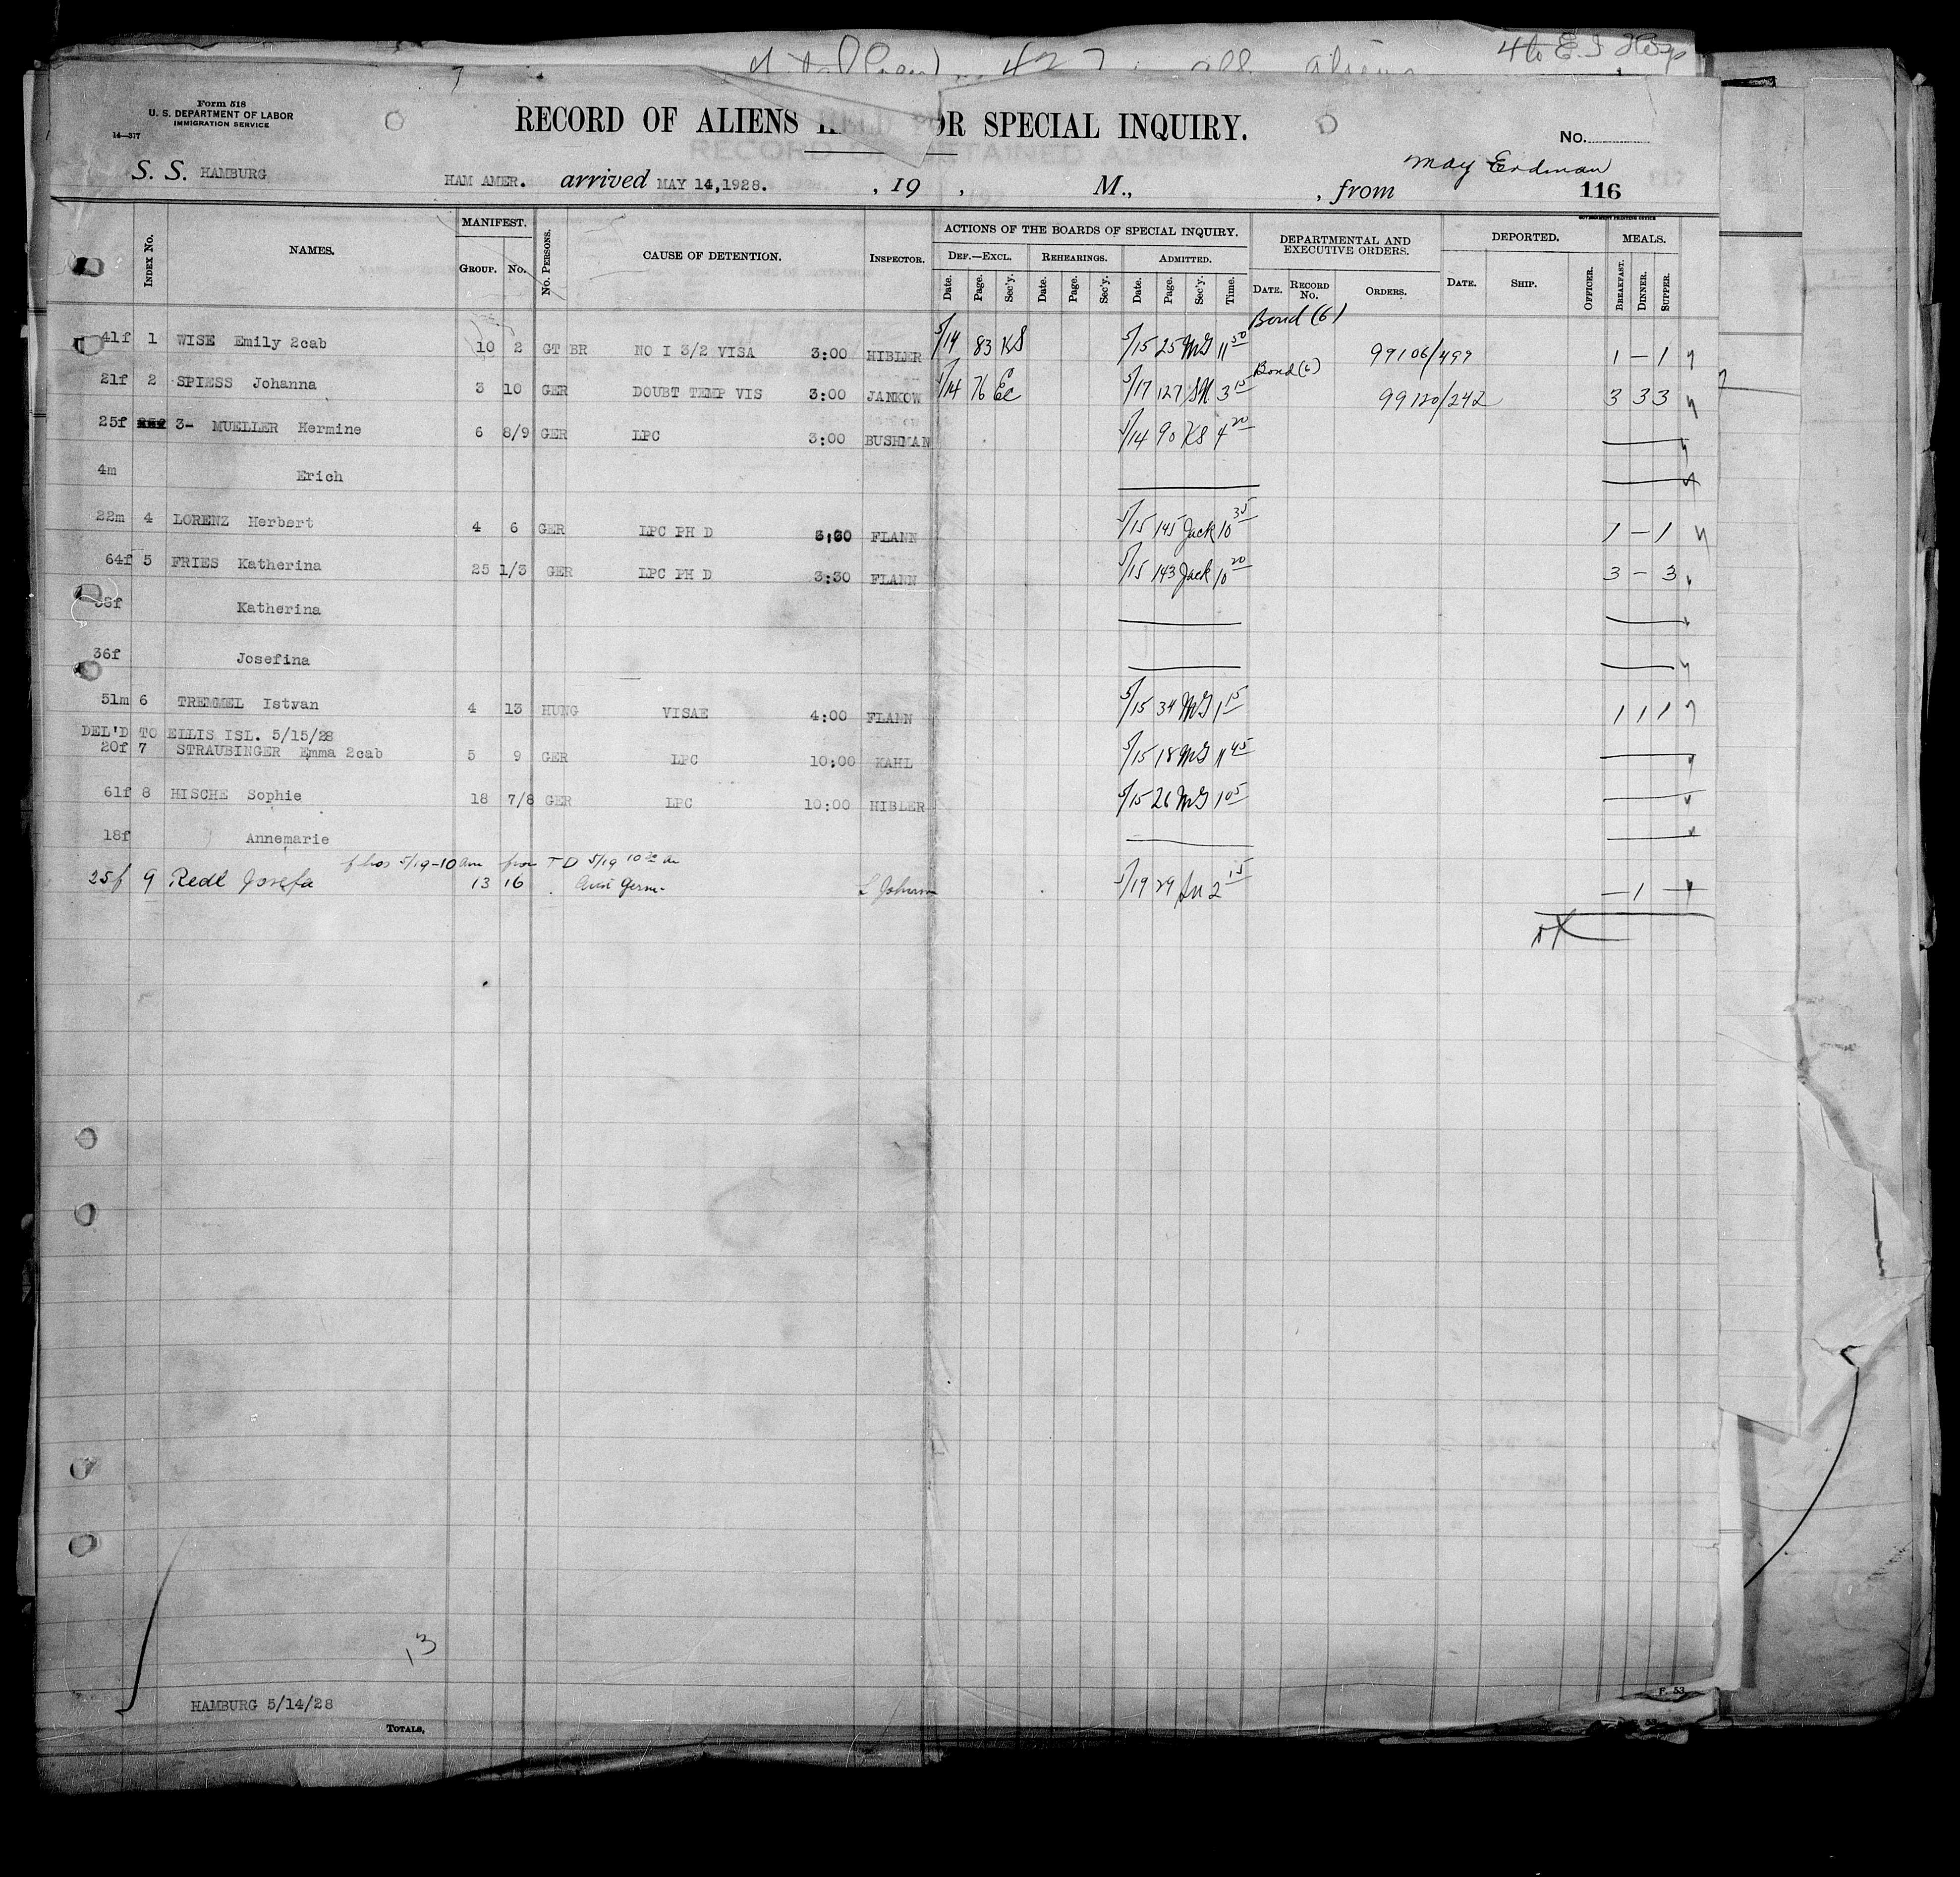 4 to E. I Hosp
Form 518
U. S. DEPARTMENT OF LABOR
IMMIGRATION SERVICE
14—377
RECORD OF ALIENS HELD FOR SPECIAL INQUIRY.
No.
S. S. HAMBURG HAM AMER. arrived MAY 14,1928. , 19 , M., , from May Erdman 116
GOVERNMENT PRINTING OFFICE
INDEX No. NAMES. MANIFEST. GROUP. No. No. PERSONS. CAUSE OF DETENTION. INSPECTOR. ACTIONS OF THE BOARDS OF SPECIAL INQUIRY. DEPARTMENTAL AND EXECUTIVE ORDERS. DEPORTED. MEALS.
DEF.—EXCL. REHEARINGS. ADMITTED.
Date. Page. Sec'y. Date. Page. Sec'y. Date. Page. Sec'y. Time. DATE. RECORD No. ORDERS. DATE. SHIP. OFFICER. BREAKFAST. DINNER. SUPPER.
Bond (6)
41f 1 WISE Emily 2cab 10 2 GT BR NO I 3/2 VISA 3:00 HIBLER 5/14 83 KS 5/15 25 MG 11 50 99106/499 1 — 1
Bond (6)
21f 2 SPIESS Johanna 3 10 GER DOUBT TEMP VIS 3:00 JANKOW 5/14 76 Ec 5/17 127 SN 3 15 99120/242 3 3 3
25f 3- MUELLER Hermine 6 8/9 GER LPC 3:00 BUSHMAN 5/14 90 KS 4 20
4m Erich
22m 4 LORENZ Herbert 4 6 GER LPC PH D 3:30 FLANN 5/15 145 Jack 10 35 1 — 1
64f 5 FRIES Katherina 25 1/3 GER LPC PH D 3:30 FLANN 5/15 143 Jack 10 20 3 — 3
38f Katherina
36f Josefina
51m 6 TREMMEL Istvan 4 13 HUNG VISAE 4:00 FLANN 5/15 34 MG 1 15 1 1 1
DEL'D TO ELLIS ISL. 5/15/28
20f 7 STRAUBINGER Emma 2cab 5 9 GER LPC 10:00 KAHL 5/15 18 MG 11 45
61f 8 HISCHE Sophie 18 7/8 GER LPC 10:00 HIBLER 5/15 26 MG 1 05
18f Annemarie
f hos 5/19-10 am from TD 5/19 10 30 am
25f 9 Redl Josefa 13 16 Aust Germ. L Johnson 5/19 29 2 15 — 1 —
13
HAMBURG 5/14/28
TOTALS,
F. 53